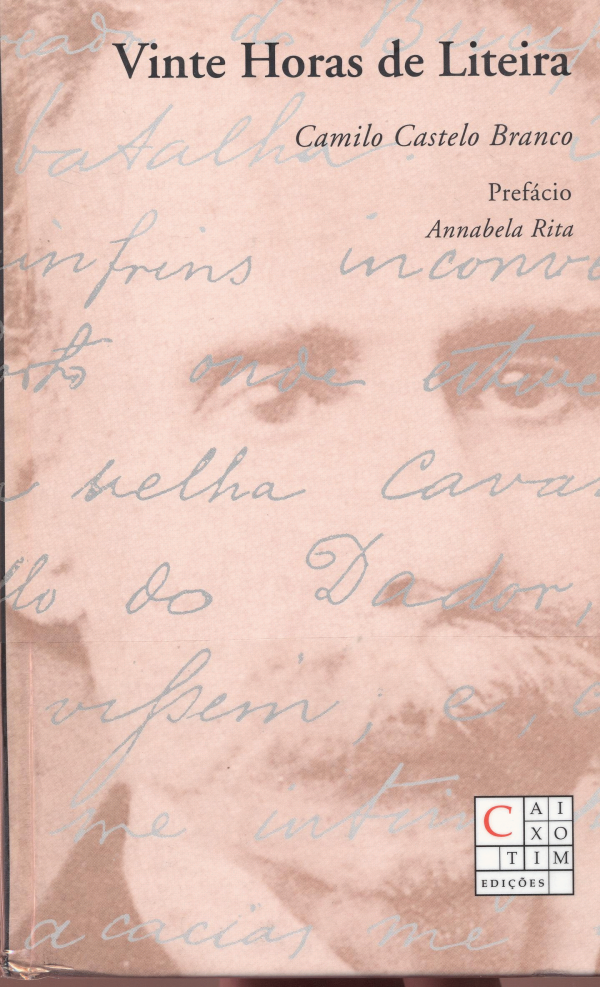 Vinte Horas de Liteira
Camilo Castelo Branco
Prefácio
Annabela Rita
batalha
infrins inconv
onde estive
velha Cava
do Dador,
vissem; e,
me
acacias me
CAI
XO
TIM
EDIÇÕES